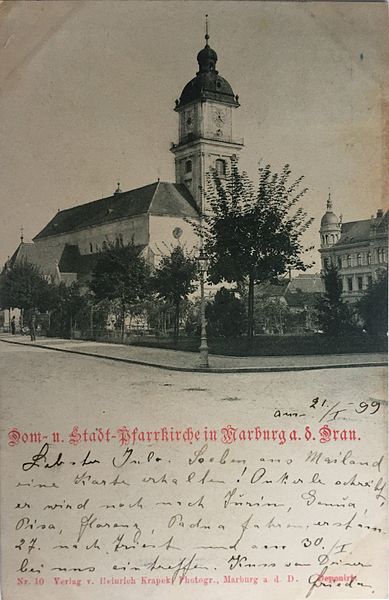 am 21/I 99
Dom- u. Stadt-Pfarrkirche in Marburg a. d. Drau.
Liebster Julo. Soeben aus Mailand
eine Karte erhalten! Onkerle schreibt,
er wird noch nach Turin, Genua,
Pisa, Florenz, Padua fahren, erst am
27. nach Triest und am 30/I
bei uns eintreffen. Kuss von Deiner
Nr. 10 Verlag v. Heinrich Krapek, Photogr., Marburg a. d. D. Deponirt.